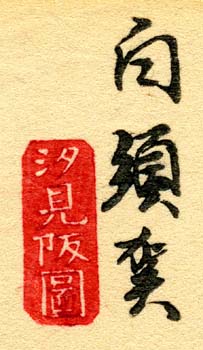 白須賀
汐見阪圖